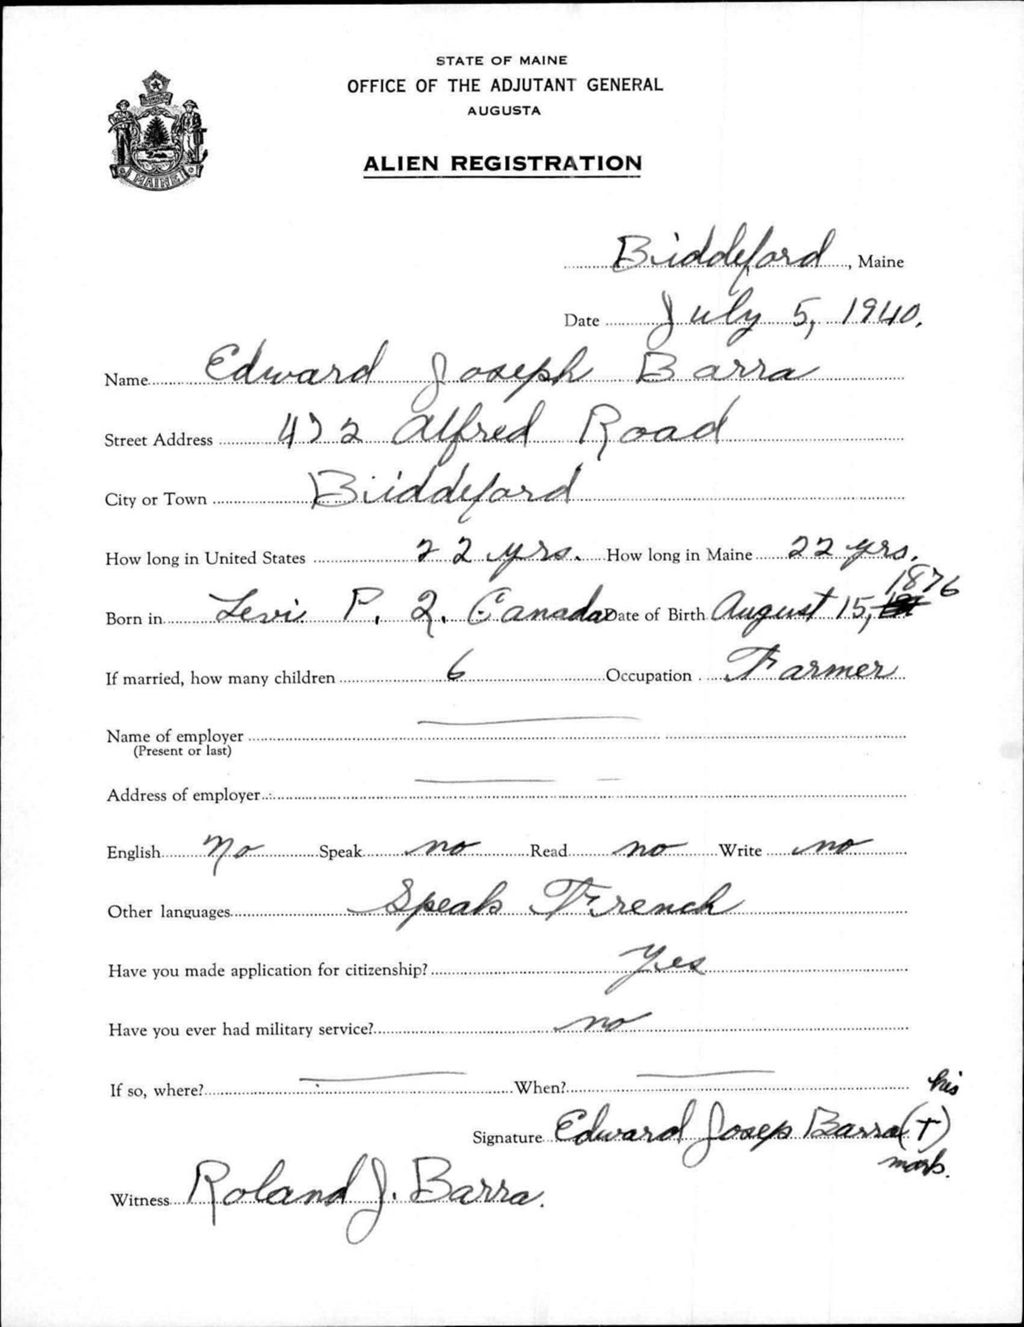 STATE OF MAINE
OFFICE OF THE ADJUTANT GENERAL
AUGUSTA
ALIEN REGISTRATION
MAINE
Biddeford, Maine
Date July 5, 1940.
Name Edward Joseph Barra
Street Address 472 Alfred Road
City or Town Biddeford
How long in United States 22 yrs. How long in Maine 22 yrs.
Born in Levi P. Q. Canada Date of Birth August 15, 1876
If married, how many children 6 Occupation Farmer
Name of employer
(Present or last)
Address of employer
English No Speak no Read no Write no
Other languages Speak French
Have you made application for citizenship? Yes
Have you ever had military service? no
If so, where? When?
his
Signature Edward Josep Barra (†)
mark.
Witness Roland J. Barra.